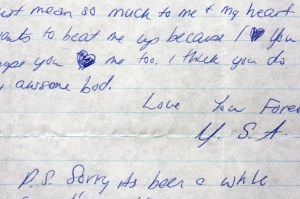 just mean so much to me & my heart
wants to beat me up because I ♥ you
hope you ♥ me too. I think you do
awsome bod.
Love You Forev
U.S.A
P.S. Sorry its been a while